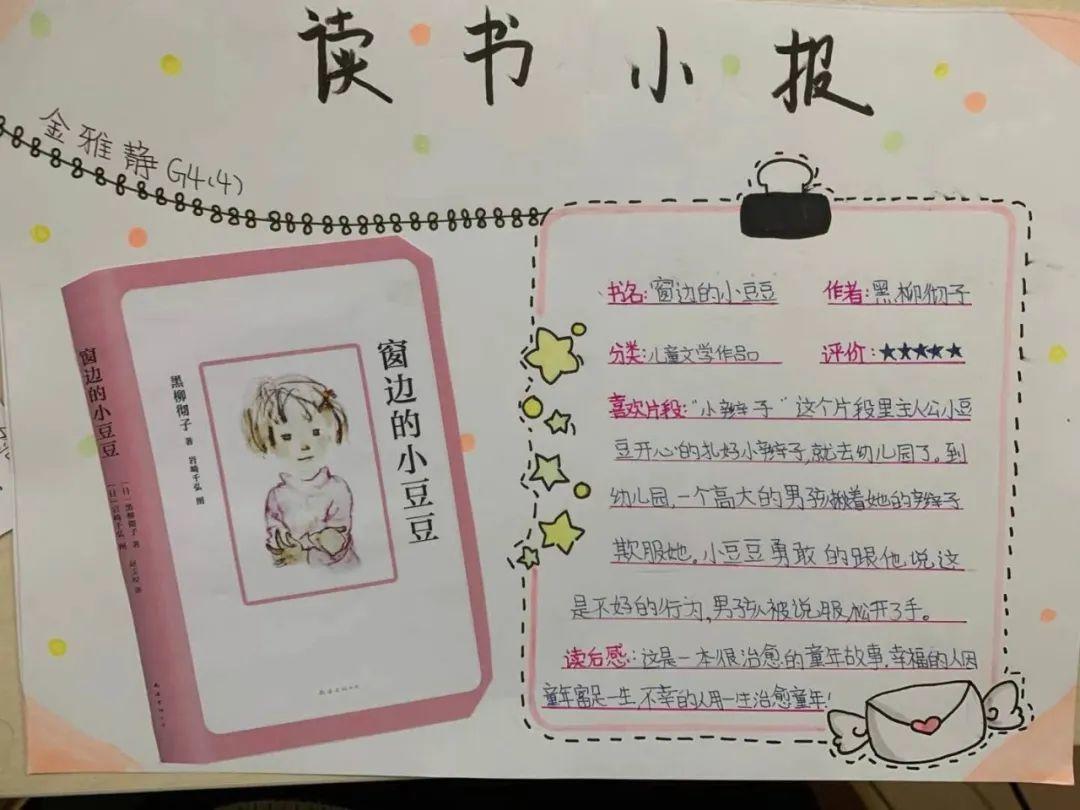 读书小报
金雅静 G4(4)
窗边的小豆豆
黑柳彻子 著
岩崎千弘 图
窗边的小豆豆
[日] 黑柳彻子 著
[日] 岩崎千弘 图
书名:窗边的小豆豆 作者:黑柳彻子
分类:儿童文学作品 评价:★★★★★
喜欢片段:“小辫子”这个片段里主人公小豆
豆开心的扎好小辫子,就去幼儿园了。到
幼儿园,一个高大的男孩揪着她的辫子
欺服她。小豆豆勇敢的跟他说这
是不好的行为,男孩被说服松开了手。
读后感:这是一本很治愈的童年故事.幸福的人因
童年富足一生,不幸的人用一生治愈童年!